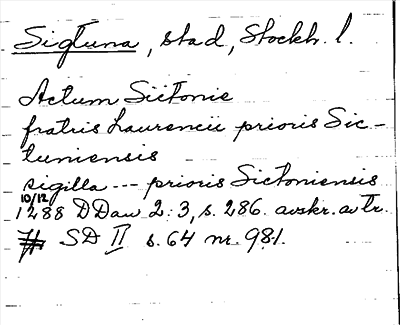 Sigtuna, stad, Stockh. l.
Actum Sictonie
fratris Laurencii prioris Sic-
tuniensis
sigilla --- prioris Sictoniensis
10/12
1288 DDan 2:3, s. 286. avskr. av tr.
SD II s. 64 nr. 981.